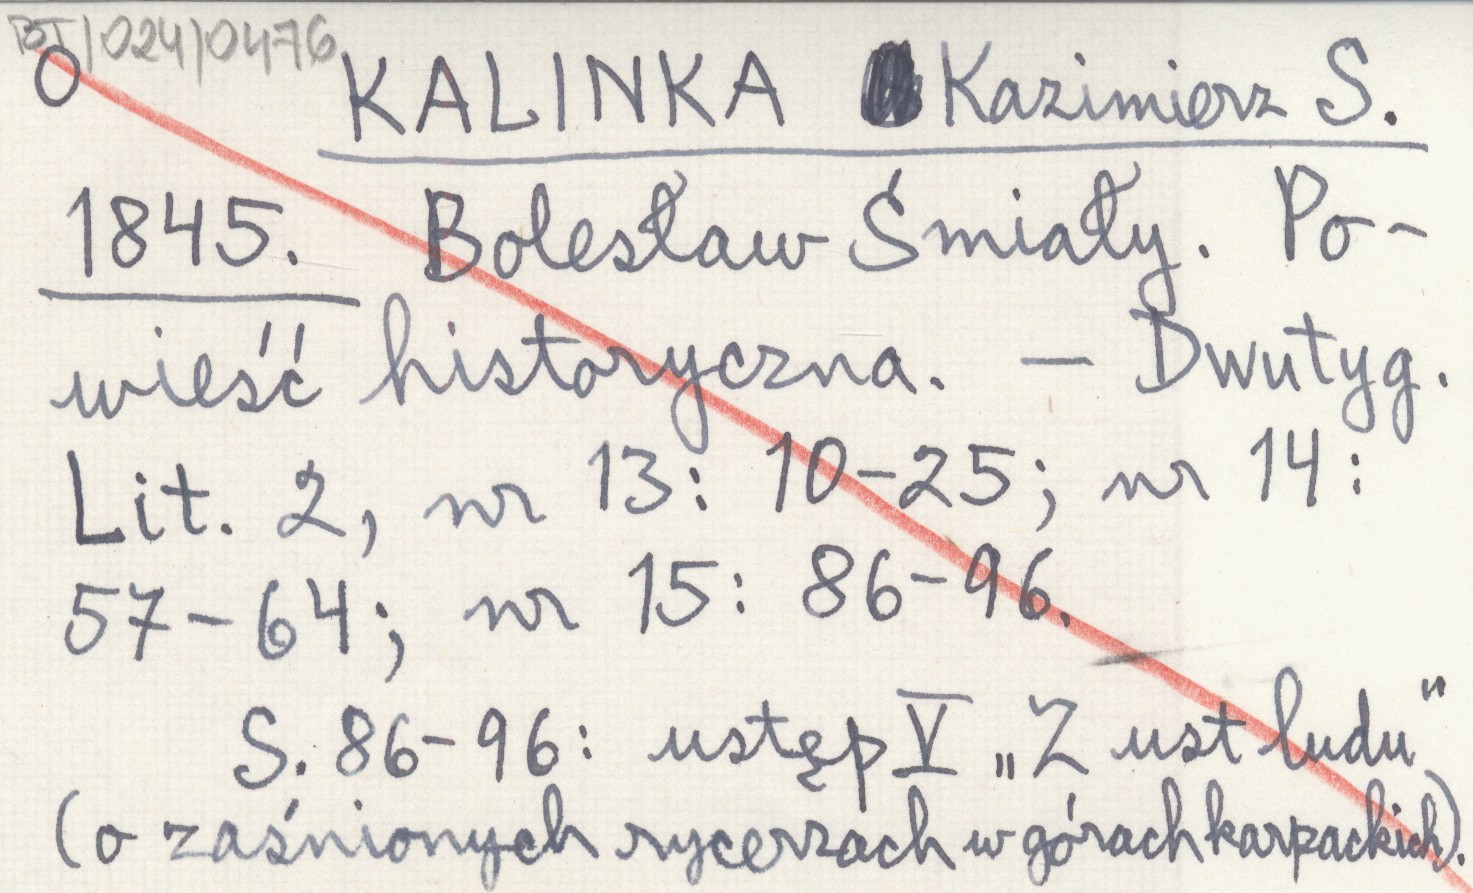 BT/024/0476
O KALINKA Kazimierz S.
1845. Bolesław Śmiały. Po-
wieść historyczna. — Dwutyg.
Lit. 2, nr 13: 10-25; nr 14:
57-64; nr 15: 86-96.
S. 86-96: ustęp V „Z ust ludu"
(o zaśnionych rycerzach w górach karpackich).